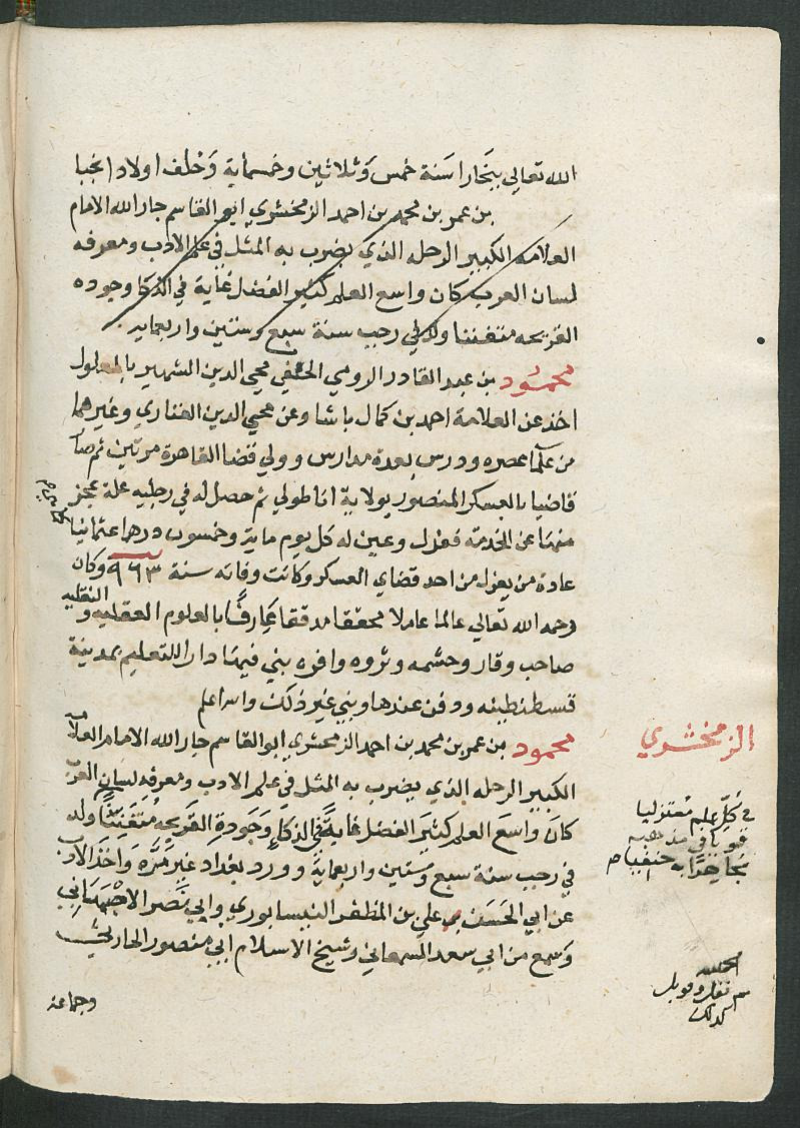 الله تعالى ببخارا سنة خمس وثلاثين وخمسماية وخلف اولادا نجبا
بن عمر بن محمد بن احمد الزمخشري ابو القاسم جار الله الامام
العلامه الكبير الرحله الذي يضرب به المثل في علم الادب ومعرفه
لسان العرب كان واسع العلم كثير الفضل غاية في الذكا وجوده
القريحه متفننا ولد في رجب سنة سبع وستين واربعمايه
محمود بن عبد القادر الرومي الحنفي محيي الدين الشهير بالمعلول
اخذ عن العلامة احمد بن كمال باشا وعن محيي الدين الفناري وغيرهما
من علما عصره ودرس بعدة مدارس وولي قضا القاهرة مرتين ثم صار
قاضيا بالعسكر المنصور بولاية اناطولي ثم حصل له في رجليه علة عجز
منها عن الخدمة فعزل وعين له كل يوم ماية وخمسون درهما عثمانيا
عادة من يعزل من احد قضاي العسكر وكانت وفاته سنة ٩٦٣ وكان
رحمه الله تعالي عالما عاملا محققا مدققا عارفا بالعلوم العقلية والنقليه
صاحب وقار وحشمه وثروه وافره بني فيها دارا للتعليم بمدينة
قسطنطينه ودفن عندها وبني غير ذلك والله اعلم
محمود بن عمر بن محمد بن احمد الزمخشري ابو القاسم جار الله الامام العلامه
الزمخشري
الكبير الرحله الذي يضرب به المثل في علم الادب ومعرفه لسان العرب
كان واسع العلم كثير الفضل غاية في الذكاء وجودة القريحه متفننا ولد
في كل علم معتزليا
قويا في مذهبه
مجاهرا به حنفيا م
في رجب سنة سبع وستين واربعماية وورد بغداد غير مرة واخذ الادب
عن ابي الحسن بن علي بن المظفر النيسابوري وابي نصر الاصبهاني
وسمع من ابي سعد السمعاني وشيخ الاسلام ابي منصور الحارثي
الحمد لله
وقوبل
كذلك
وجماعة